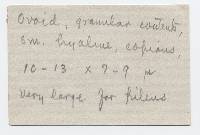 Ovoid, granular contents,
sm. hyaline, copious,
10-13 x 7-9 µ
very large for pileus